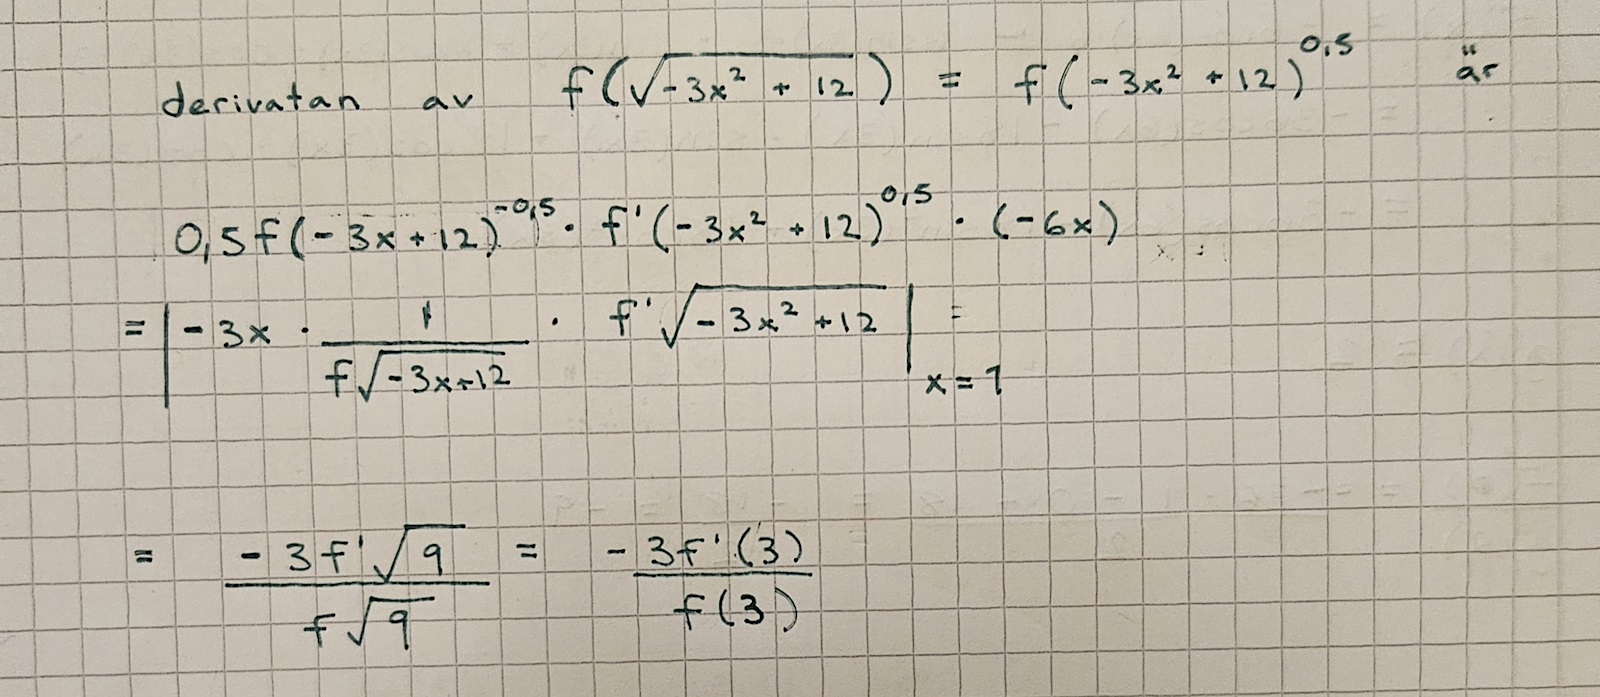 derivatan av f(√(-3x² + 12)) = f(-3x² + 12)^0,5 är
0,5f(-3x+12)^-0,5 · f'(-3x² + 12)^0,5 · (-6x)
= | -3x · 1/(f√(-3x+12)) · f'√(-3x² +12) | x=1 =
= (-3f'√9)/(f√9) = (-3f'(3))/(f(3))